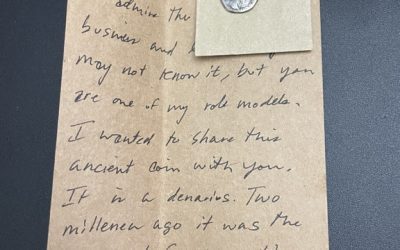 admire the
business and
may not know it, but you
are one of my role models.
I wanted to share this
ancient coin with you.
It is a denarius. Two
milleneu ago it was the